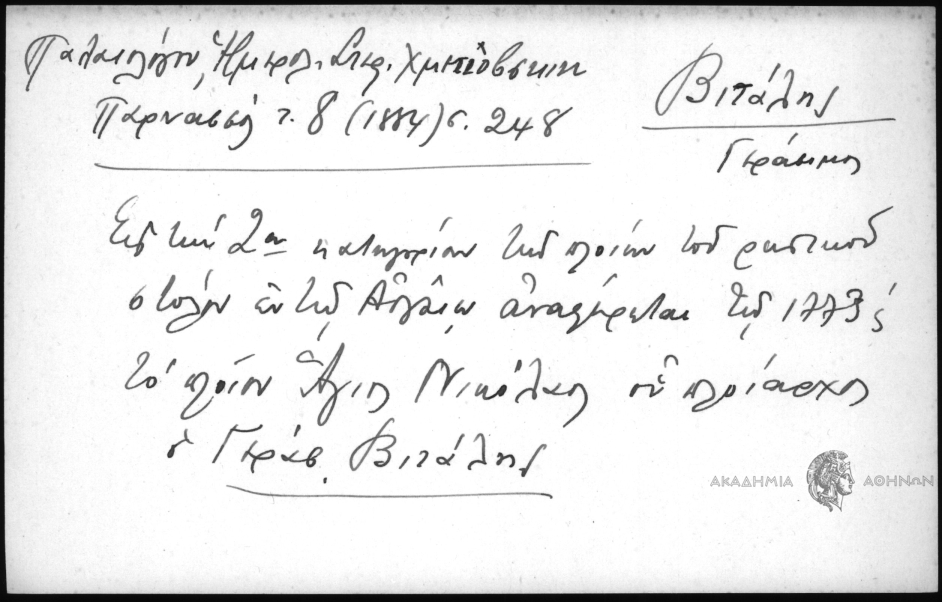 Παλαιολόγου, Ἡμερολ. Στεφ. Χμητεύβσκη
Παρνασσός τ. 8 (1884) σ. 248
Βιτάλης
Γεράσιμος
Εἰς τὴν 2αν κατηγορίαν τῶν πλοίων τοῦ ρωσικοῦ
στόλου ἐν τῷ Αἰγαίῳ ἀναφέρεται τῷ 1773
τὸ πλοῖον Ἅγιος Νικόλαος οὗ πλοίαρχος
ὁ Γεράσ. Βιτάλης
ΑΚΑΔΗΜΙΑ ΑΘΗΝΩΝ